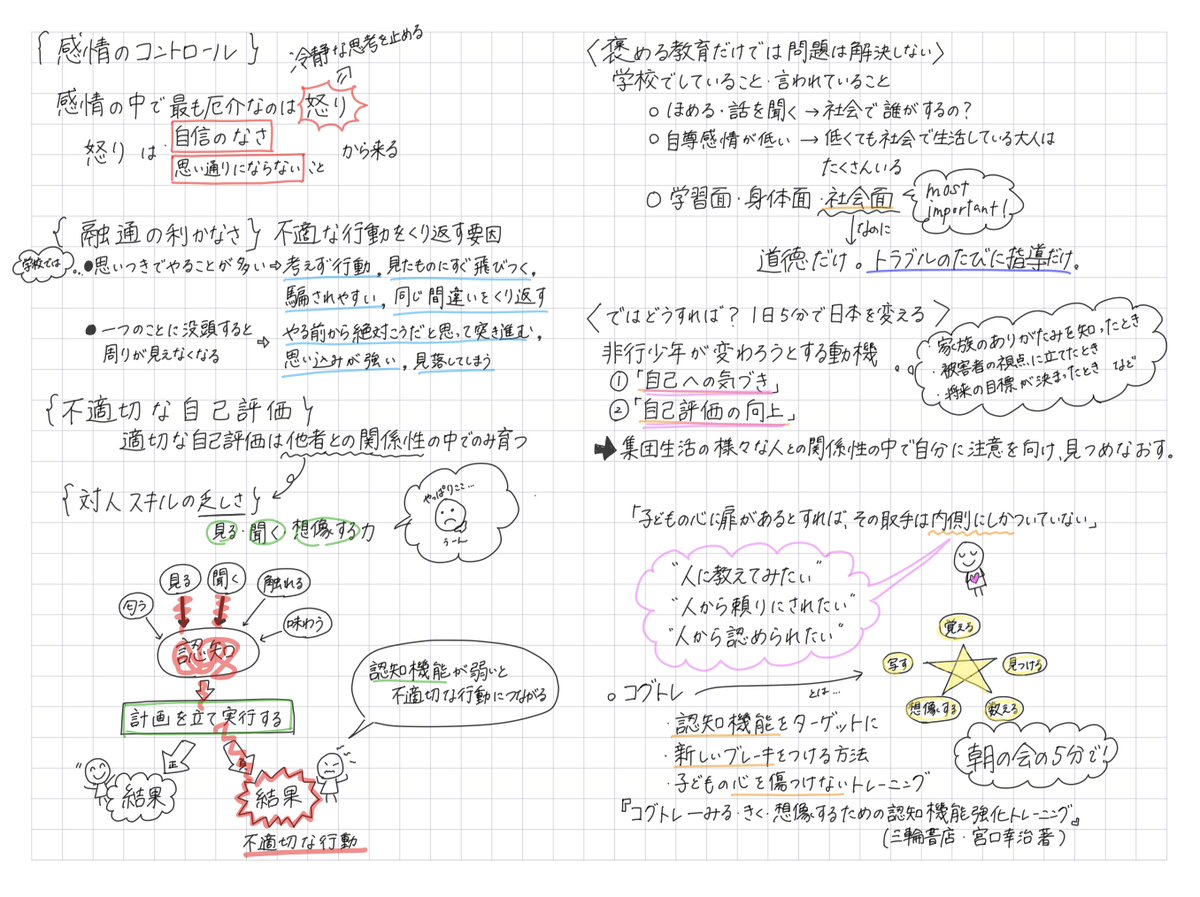 {感情のコントロール}
冷静な思考を止める
感情の中で最も厄介なのは怒り
怒りは
・自信のなさ
・思い通りにならないこと
から来る
{融通の利かなさ} 不適な行動をくり返す要因
学校では
●思いつきでやることが多い⇒考えず行動。見たものにすぐ飛びつく。
騙されやすい。同じ間違いをくり返す
●一つのことに没頭すると
周りが見えなくなる
⇒やる前から絶対こうだと思って突き進む。
思い込みが強い。見落してしまう
{不適切な自己評価}
適切な自己評価は他者との関係性の中でのみ育つ
{対人スキルの乏しさ}
見る・聞く 想像する力
やっぱりここ…
うーん
見る
聞く
触れる
匂う
味わう
認知
計画を立て実行する
正
結果
結果
不適切な行動
認知機能が弱いと
不適切な行動につながる
〈褒める教育だけでは問題は解決しない〉
学校でしていること・言われていること
○ ほめる・話を聞く→社会で誰がするの?
○ 自尊感情が低い →低くても社会で生活している大人は
たくさんいる
○ 学習面・身体面・社会面
most
important!
↓なのに
道徳だけ。トラブルのたびに指導だけ。
〈ではどうすれば? 1日5分で日本を変える〉
非行少年が変わろうとする動機
①「自己への気づき」
②「自己評価の向上」
・家族のありがたみを知ったとき
・被害者の視点に立てたとき
・将来の目標が決まったとき など
➡集団生活の様々な人との関係性の中で自分に注意を向け、見つめなおす。
「子どもの心に扉があるとすれば、その取手は内側にしかついていない」
"人に教えてみたい"
"人から頼りにされたい"
"人から認められたい"
覚える
写す
見つける
想像する
数える
○コグトレ
とは…
・認知機能をターゲットに
・新しいブレーキをつける方法
・子どもの心を傷つけないトレーニング
朝の会の5分で!
『コグトレーみる・きく・想像するための認知機能強化トレーニング』
(三輪書店・宮口幸治著)